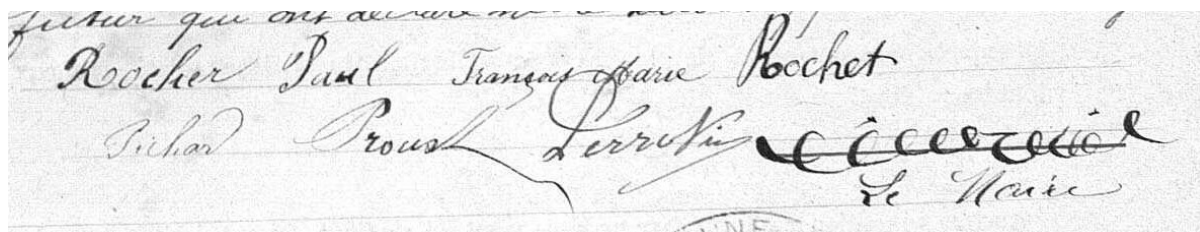 futur qui ont déclaré ne
Rocher Paul François Marie Rochet
Pichard Proust Perrotin
Le Maire
UNE